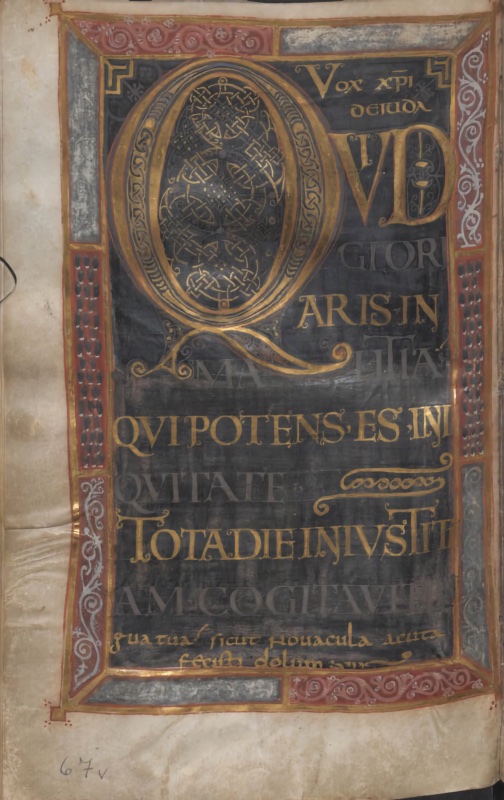 Vox xp̄i
de iuda
QUID
GLORI
ARIS·IN
MALITIA
QVI POTENS·ES·INI
QVITATE
TOTA DIE INIVSTITI
AM·COGITAVIT
gua tua sicut novacula acuta
fecisti dolum
67v